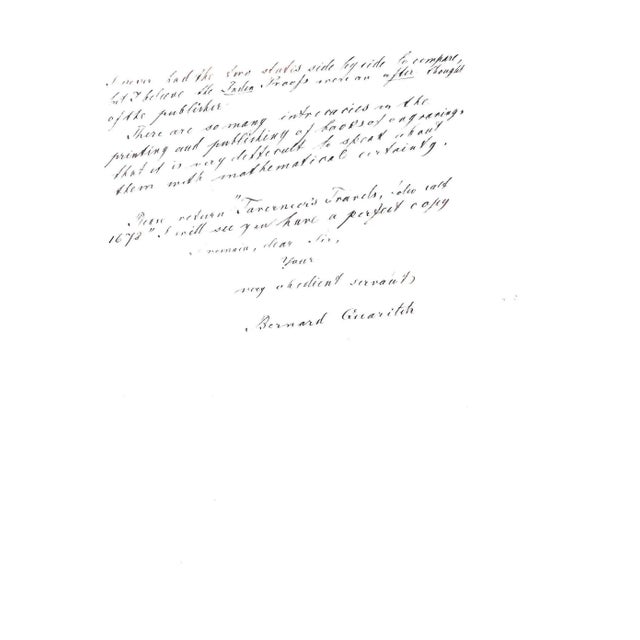 I never had the two states side by side to compare,
but I believe the India Proofs were an after thought
of the publisher.
There are so many intrecacies in the
printing and publishing of books of engravings
that it is very deffecult to speak about
them with mathematical certainty.
Please return "Taverneer's Travels, folio calf
1678" I will see you have a perfect copy
I remain, dear Sir,
Your
very obedient servant,
Bernard Quaritch